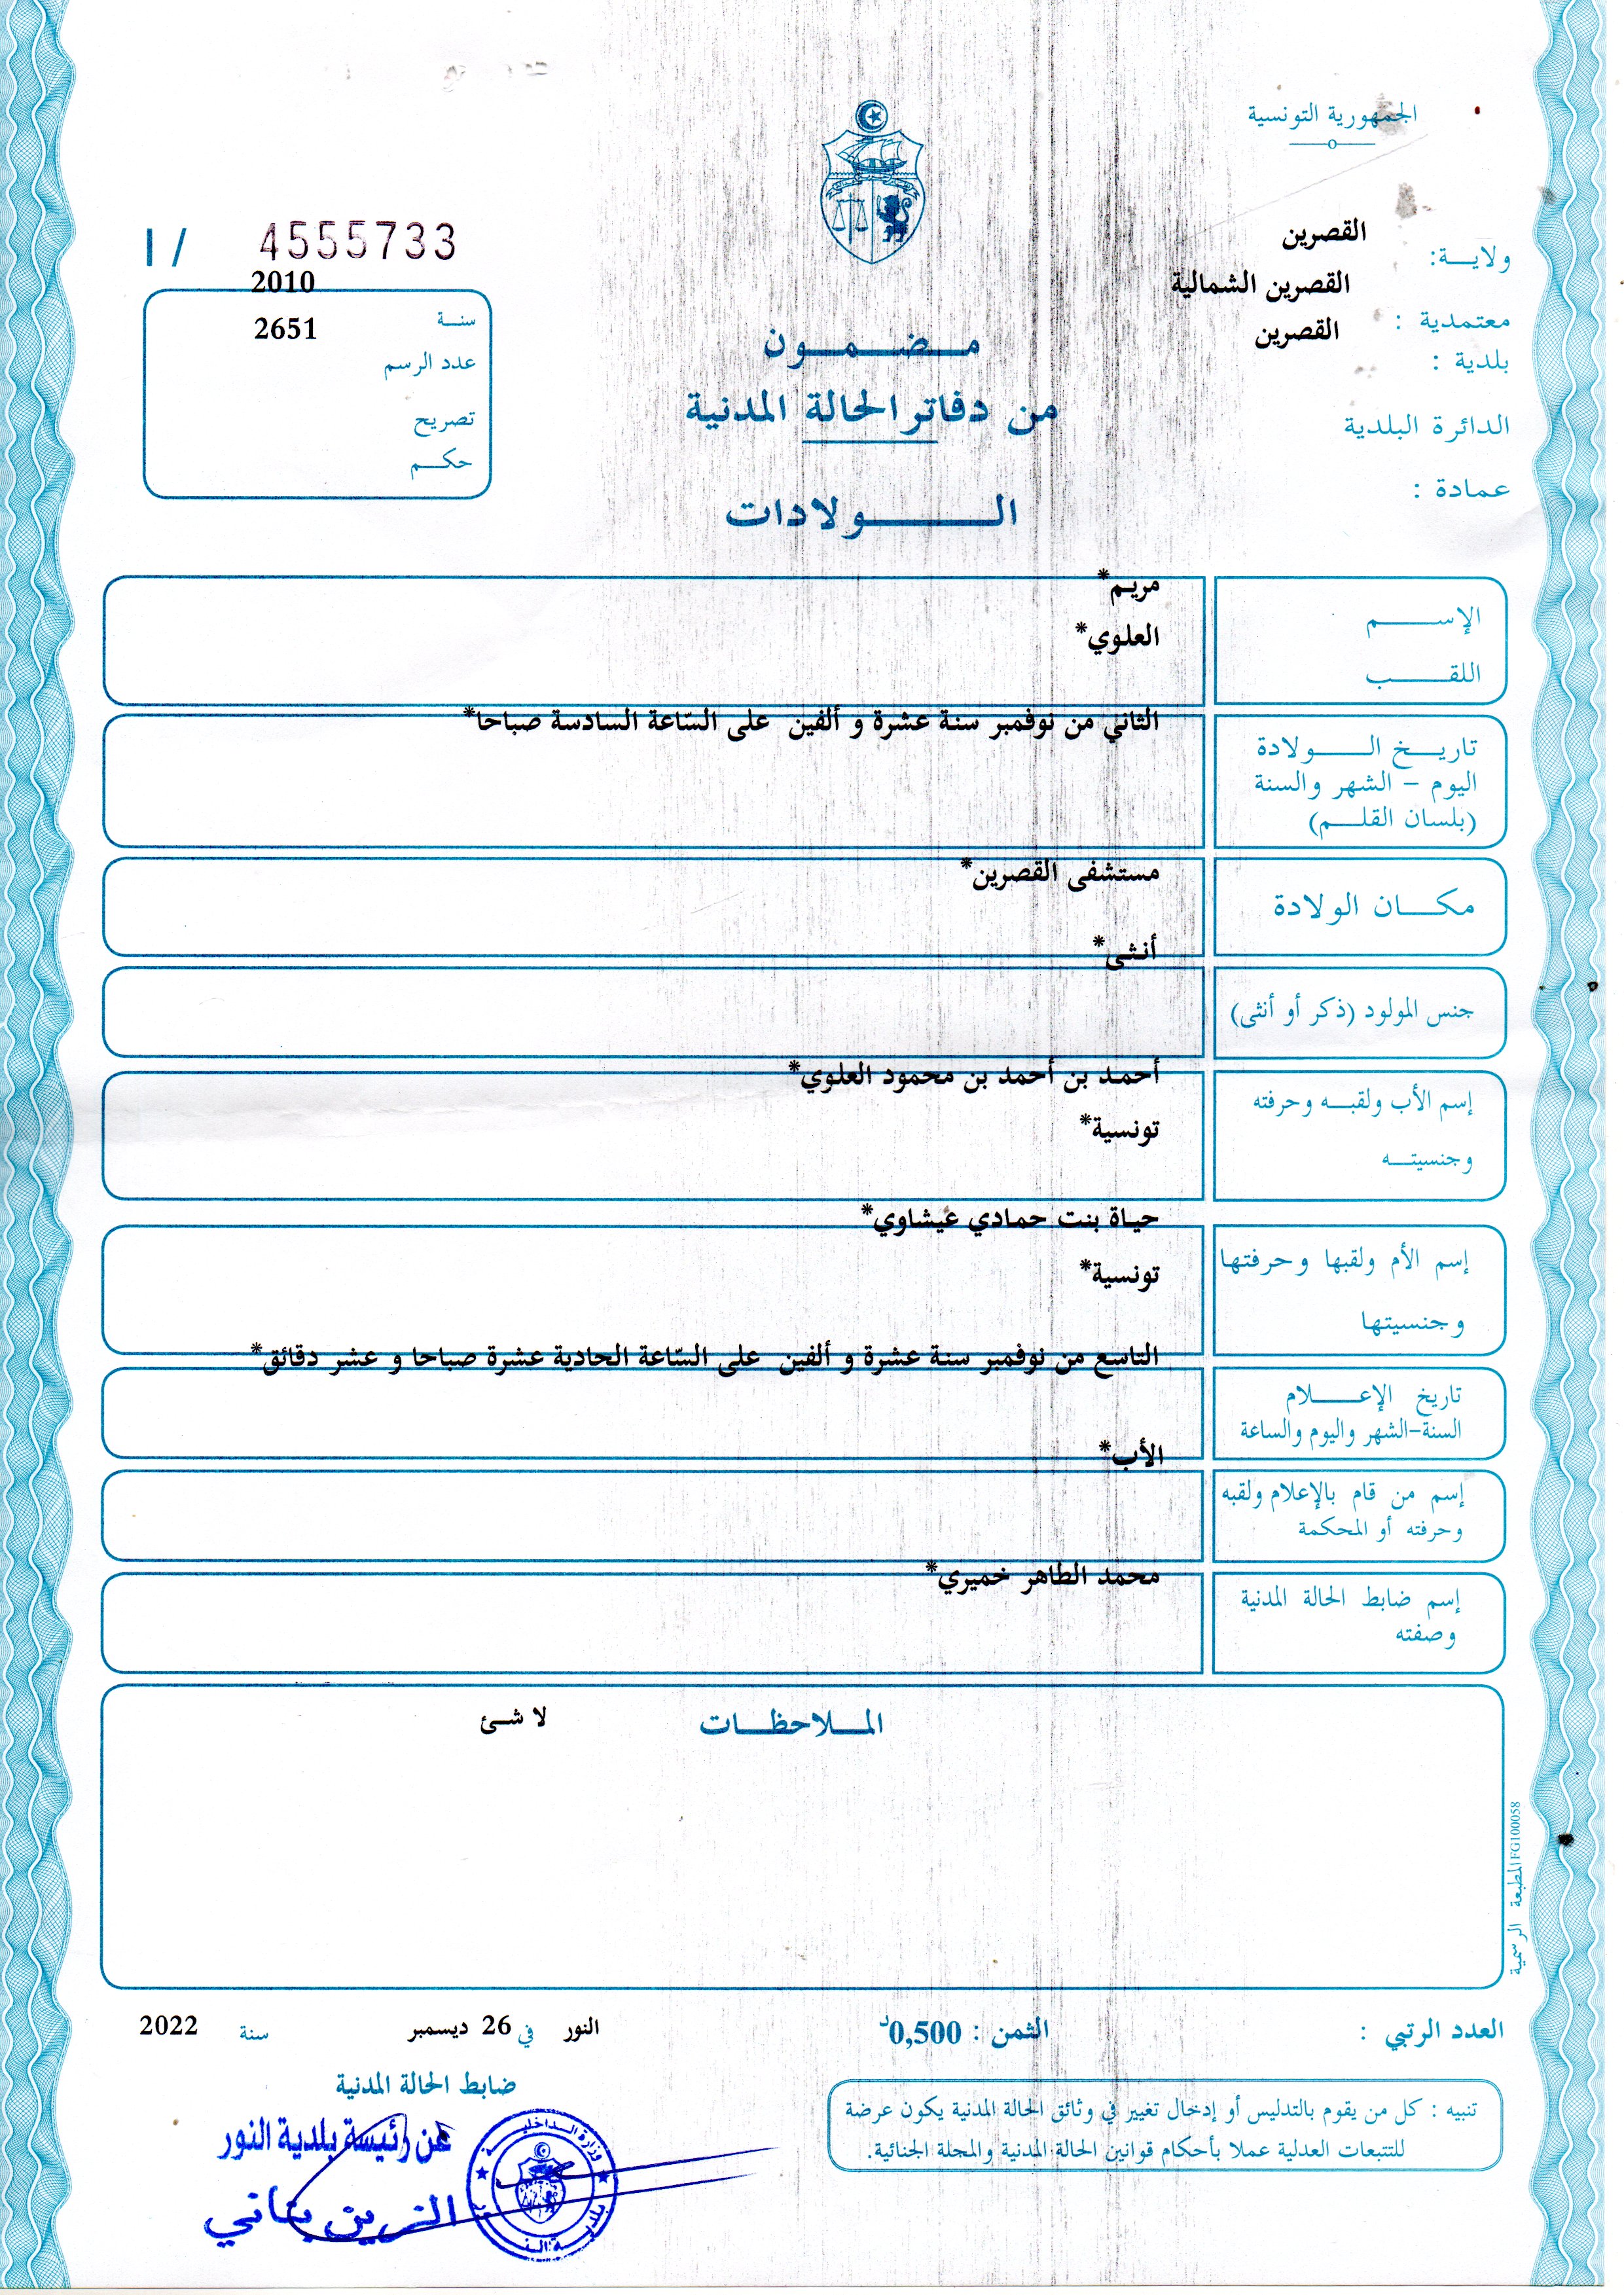 الجمهورية التونسية
ولايـــة: القصرين
معتمدية : القصرين الشمالية
بلدية : القصرين
الدائرة البلدية
عمادة :
I / 4555733
سنــة 2010
عدد الرسم 2651
تصريح
حكــم
مـضـمـون
من دفاتر الحالة المدنية
الــولادات
الإســـم مريم*
اللقــب العلوي*
تاريــخ الــولادة
اليوم – الشهر والسنة
(بلسان القلــم)
الثاني من نوفمبر سنة عشرة و ألفين على السّاعة السادسة صباحا*
مكــان الولادة مستشفى القصرين*
جنس المولود (ذكر أو أنثى) أنثى*
إسم الأب ولقبــه وحرفته أحمد بن أحمد بن محمود العلوي*
وجنسيتــه تونسية*
إسم الأم ولقبها وحرفتها حياة بنت حمادي عيشاوي*
وجنسيتها تونسية*
تاريخ الإعـــلام
السنة-الشهر واليوم والساعة
التاسع من نوفمبر سنة عشرة و ألفين على السّاعة الحادية عشرة صباحا و عشر دقائق*
إسم من قام بالإعلام ولقبه
وحرفته أو المحكمة
الأب*
إسم ضابط الحالة المدنية
وصفته
محمد الطاهر خميري*
المــلاحظــات لا شئ
المطبعة الرسمية FG100058
العدد الرتبي :
الثمن : 0,500د
النور في 26 ديسمبر سنة 2022
ضابط الحالة المدنية
تنبيه : كل من يقوم بالتدليس أو إدخال تغيير في وثائق الحالة المدنية يكون عرضة
للتتبعات العدلية عملا بأحكام قوانين الحالة المدنية والمجلة الجنائية.
عن رئيسة بلدية النور
الزين بناني
وزارة الداخلية